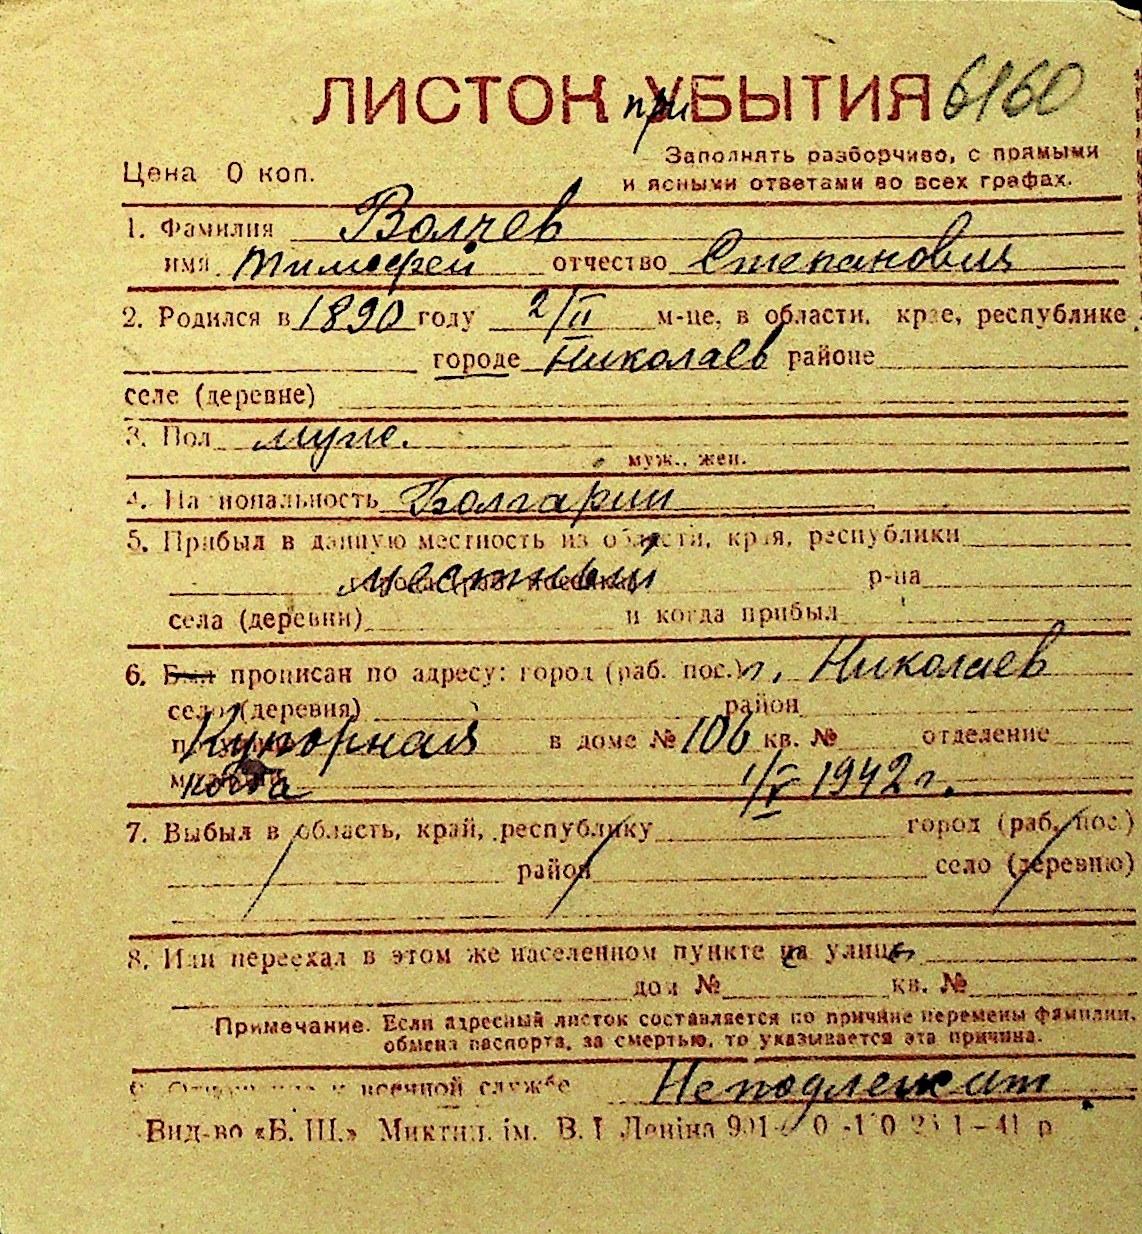 ЛИСТОК при УБЫТИЯ 6160
Цена 0 коп.
Заполнять разборчиво, с прямыми
и ясными ответами во всех графах.
1. Фамилия Волчев
имя Тимофей отчество Степанович
2. Родился в 1890 году 2/II м-це, в области, крае, республике
городе Николаев районе
селе (деревне)
3. Пол муж.
муж., жен.
4. Национальность Болгарин
5. Прибыл в данную местность из области, края, республики
местный р-на
села (деревни) и когда прибыл
6. Был прописан по адресу: город (раб. пос.) г. Николаев
село (деревня) район
Купорная в доме № 106 кв. № отделение
когда 1/V 1942 г.
7. Выбыл в область, край, республику город (раб. пос.)
район село (деревню)
8. Или переехал в этом же населенном пункте на улицу
дом № кв. №
Примечание. Если адресный листок составляется по причине перемены фамилии,
обмена паспорта, за смертью, то указывается эта причина.
военной службе Неподлежит
Вид-во «Б. Ш.» Микгил. ім. В. І Леніна